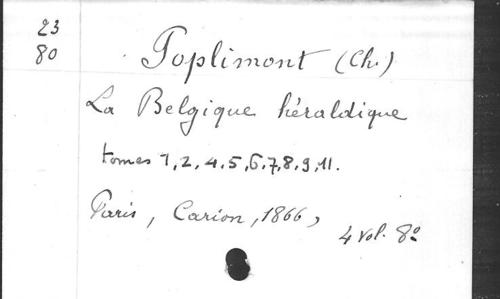 23
80
Poplimont (Ch.)
La Belgique héraldique
tomes 1, 2, 4, 5, 6, 7, 8, 9, 11.
Paris, Carion, 1866,
4 vol. 8º